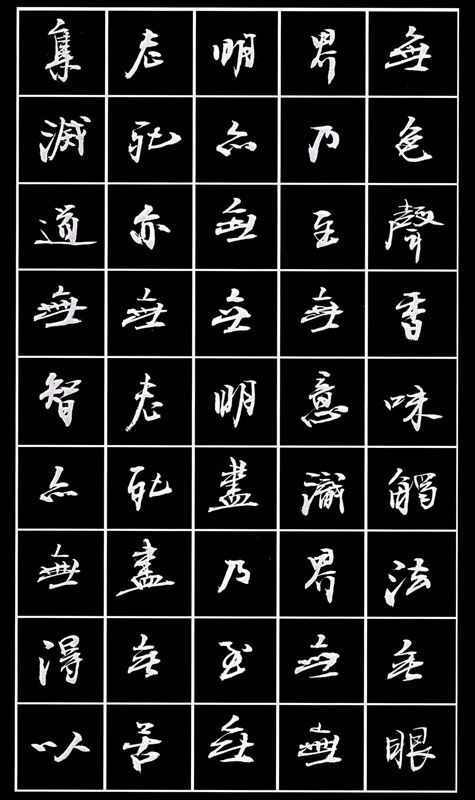 無色聲香味觸法無眼
界乃至無意識界無無
明亦無無明盡乃至無
老死亦無老死盡無苦
集滅道無智亦無得以